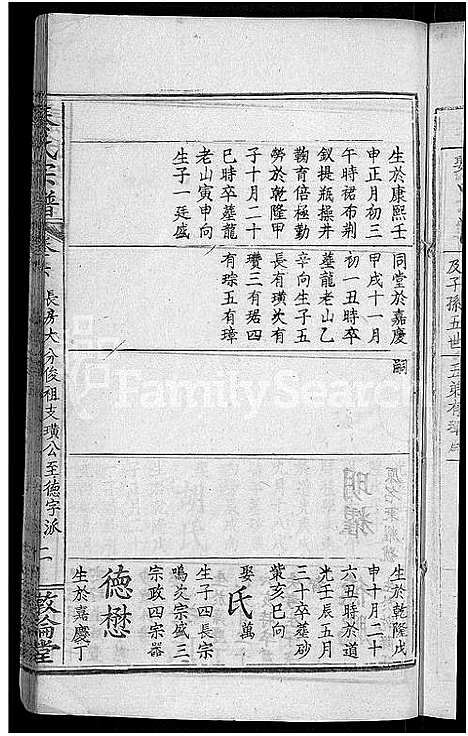 及子孫五世
生於康熙壬
申正月初三
午時裙布荆
釵提瓶操井
鞠育倍極勤
勞於乾隆甲
子十月二十
巳時卒墓龍
老山寅申向
生子一廷盛
同堂於嘉慶
甲戌十一月
初一丑時卒
墓龍老山乙
辛向生子五
長有璜次有
瓚三有琚四
有琮五有璋
嗣
生於乾隆戊
申十月二十
六丑時於道
光壬辰五月
三十卒墓砂
亥巳向
娶氏萬
生子四長宗
鳴次宗盛三
宗政四宗器
德懋
生於嘉慶丁
氏宗譜
長房大分俊祖支璜公至德字派
二
敦倫堂
FamilySearch